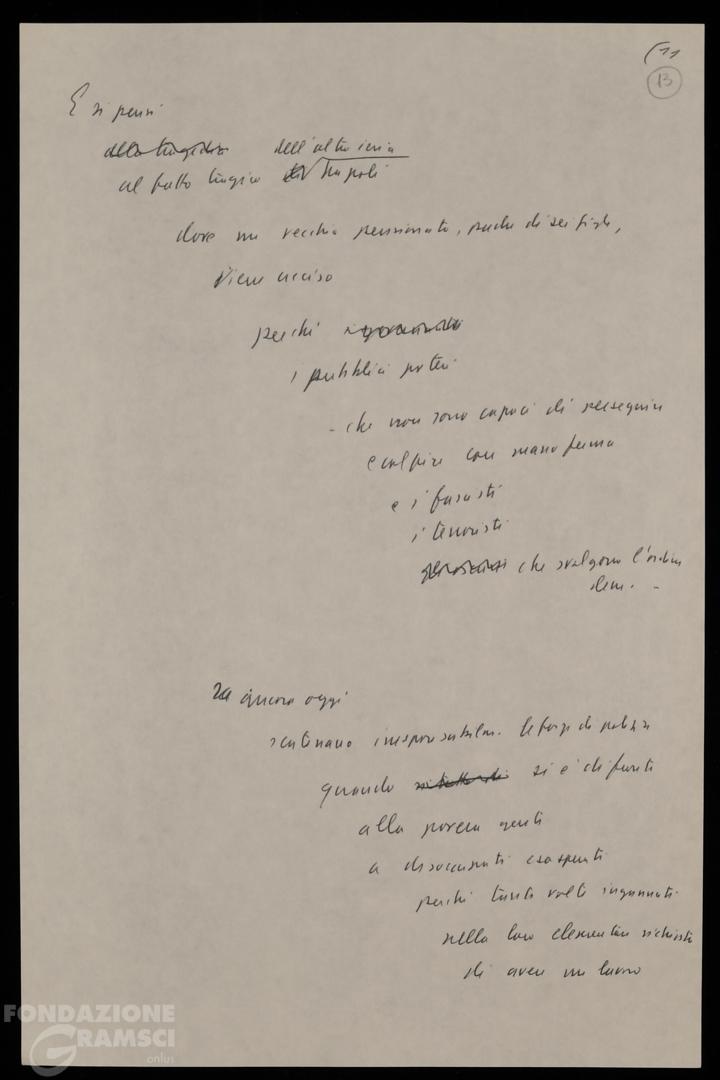 (11
13
E si pensi
alla tragedia dell'altro ieri a
al fatto tragico di Napoli
dove un vecchio pensionato, padre di sei figli,
viene ucciso
perché
i pubblici poteri
- che non sono capaci di perseguire
e colpire con mano ferma
e i fascisti
i terroristi
che svolgono l'ordine
dem. -
ancora oggi
scatenano irresponsabilm. le forze di polizia
quando si è di fronte
alla povera gente
a disoccupati esasperati
perché tante volte ingannati
nella loro elementare richiesta
di avere un lavoro
FONDAZIONE
GRAMSCI
onlus